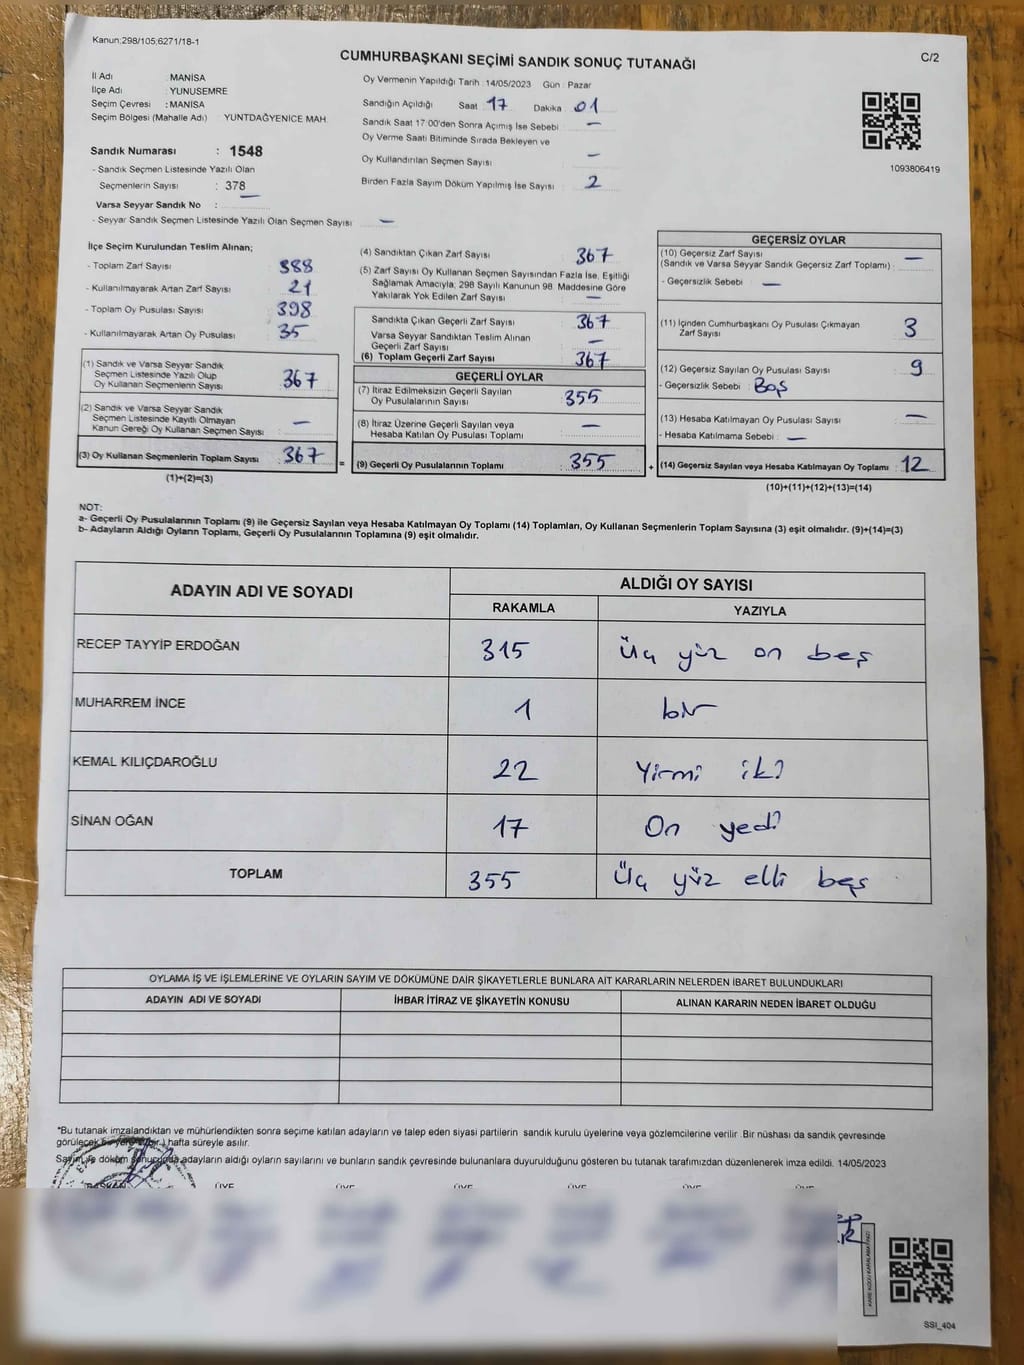 Kanun:298/105;6271/18-1
CUMHURBAŞKANI SEÇİMİ SANDIK SONUÇ TUTANAĞI
C/2
İl Adı : MANİSA
İlçe Adı : YUNUSEMRE
Seçim Çevresi : MANİSA
Seçim Bölgesi (Mahalle Adı) YUNTDAĞYENICE MAH.
Sandık Numarası : 1548
- Sandık Seçmen Listesinde Yazılı Olan
Seçmenlerin Sayısı : 378
Varsa Seyyar Sandık No : —
- Seyyar Sandık Seçmen Listesinde Yazılı Olan Seçmen Sayısı —
Oy Vermenin Yapıldığı Tarih : 14/05/2023 Gün : Pazar
Sandığın Açıldığı Saat 17 Dakika 01
Sandık Saat 17:00'den Sonra Açımış İse Sebebi —
Oy Verme Saati Bitiminde Sırada Bekleyen ve
Oy Kullandırılan Seçmen Sayısı —
Birden Fazla Sayım Döküm Yapılmış İse Sayısı 2
1093806419
İlçe Seçim Kurulundan Teslim Alınan;
- Toplam Zarf Sayısı 388
- Kullanılmayarak Artan Zarf Sayısı 21
- Toplam Oy Pusulası Sayısı 398
- Kullanılmayarak Artan Oy Pusulası 35
(1) Sandık ve Varsa Seyyar Sandık
Seçmen Listesinde Yazılı Olup
Oy Kullanan Seçmenlerin Sayısı : 367
(2) Sandık ve Varsa Seyyar Sandık
Seçmen Listesinde Kayıtlı Olmayan
Kanun Gereği Oy Kullanan Seçmen Sayısı : —
(3) Oy Kullanan Seçmenlerin Toplam Sayısı : 367
(1)+(2)=(3)
=
(4) Sandıktan Çıkan Zarf Sayısı 367
(5) Zarf Sayısı Oy Kullanan Seçmen Sayısından Fazla İse, Eşitliği
Sağlamak Amacıyla, 298 Sayılı Kanunun 98. Maddesine Göre
Yakılarak Yok Edilen Zarf Sayısı —
Sandıkta Çıkan Geçerli Zarf Sayısı 367
Varsa Seyyar Sandıktan Teslim Alınan
Geçerli Zarf Sayısı —
(6) Toplam Geçerli Zarf Sayısı 367
GEÇERLİ OYLAR
(7) İtiraz Edilmeksizin Geçerli Sayılan
Oy Pusulalarının Sayısı 355
(8) İtiraz Üzerine Geçerli Sayılan veya
Hesaba Katılan Oy Pusulası Toplamı —
(9) Geçerli Oy Pusulalarının Toplamı : 355
+
GEÇERSİZ OYLAR
(10) Geçersiz Zarf Sayısı
(Sandık ve Varsa Seyyar Sandık Geçersiz Zarf Toplamı) —
- Geçersizlik Sebebi : —
(11) İçinden Cumhurbaşkanı Oy Pusulası Çıkmayan
Zarf Sayısı 3
(12) Geçersiz Sayılan Oy Pusulası Sayısı 9
- Geçersizlik Sebebi : Boş
(13) Hesaba Katılmayan Oy Pusulası Sayısı —
- Hesaba Katılmama Sebebi : —
(14) Geçersiz Sayılan veya Hesaba Katılmayan Oy Toplamı : 12
(10)+(11)+(12)+(13)=(14)
NOT:
a- Geçerli Oy Pusulalarının Toplamı (9) ile Geçersiz Sayılan veya Hesaba Katılmayan Oy Toplamı (14) Toplamları, Oy Kullanan Seçmenlerin Toplam Sayısına (3) eşit olmalıdır. (9)+(14)=(3)
b- Adayların Aldığı Oyların Toplamı, Geçerli Oy Pusulalarının Toplamına (9) eşit olmalıdır.
ADAYIN ADI VE SOYADI ALDIĞI OY SAYISI
RAKAMLA YAZIYLA
RECEP TAYYİP ERDOĞAN 315 Üç yüz on beş
MUHARREM İNCE 1 bir
KEMAL KILIÇDAROĞLU 22 Yirmi iki
SİNAN OĞAN 17 On yedi
TOPLAM 355 Üç yüz elli beş
OYLAMA İŞ VE İŞLEMLERİNE VE OYLARIN SAYIM VE DÖKÜMÜNE DAİR ŞİKAYETLERLE BUNLARA AİT KARARLARIN NELERDEN İBARET BULUNDUKLARI
ADAYIN ADI VE SOYADI İHBAR İTİRAZ VE ŞİKAYETİN KONUSU ALINAN KARARIN NEDEN İBARET OLDUĞU
*Bu tutanak imzalandıktan ve mühürlendikten sonra seçime katılan adayların ve talep eden siyasi partilerin sandık kurulu üyelerine veya gözlemcilerine verilir. Bir nüshası da sandık çevresinde
görülecek bir yere (bir ) hafta süreyle asılır.
Sayım ve döküm sonucunda adayların aldığı oyların sayılarını ve bunların sandık çevresinde bulunanlara duyurulduğunu gösteren bu tutanak tarafımızdan düzenlenerek imza edildi. 14/05/2023
BAŞKAN ÜYE ÜYE ÜYE ÜYE ÜYE ÜYE
SSI_404